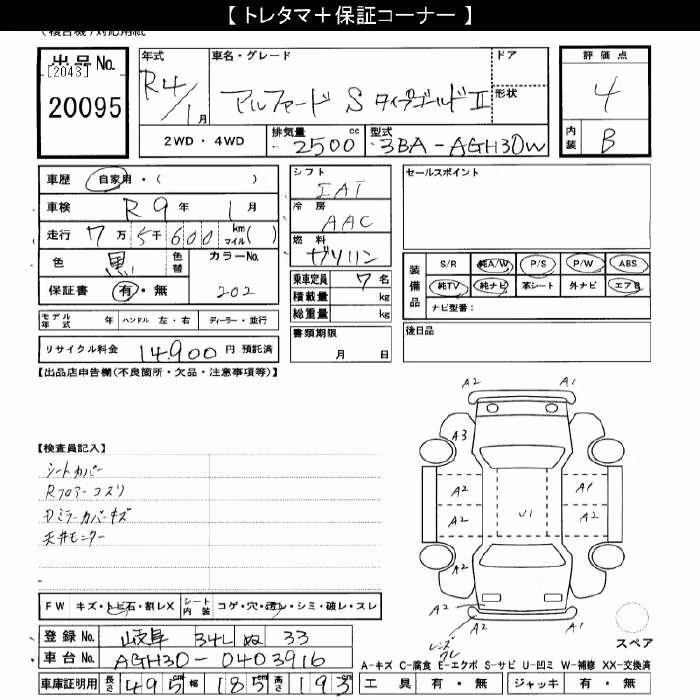 【 トレタマ＋保証コーナー 】
出品No.
[2043]
20095
年式
R4/1月
車名・グレード
アルファード S タイプゴールド II
ドア
形状
2WD ・ 4WD
排気量 2500 cc
型式 3BA-AGH30W
評価点
4
内装 B
車歴 自家用・( )
車検 R9年 1月
走行 7万5千600 km マイル( )
色 黒 色替
カラーNo. 202
保証書 有・無
シフト
IAT
冷房
AAC
燃料
ガソリン
乗車定員 7名
積載量 kg
総重量 kg
書類期限
月 日
セールスポイント
装備品
S/R 純A/W P/S P/W ABS
純TV 純ナビ 革シート 外ナビ エアB
ナビ型番：
後日品
モデル年式 年 ハンドル 左・右 ディーラー・並行
リサイクル料金 14,900 円 預託済
【出品店申告欄(不良箇所・欠品・注意事項等)】
【検査員記入】
シートカバー
Rフロアーコスリ
Dミラーカバーキズ
天井モニター
A2 A1
A3
A2 A1
A2 U1 A2
A2 A2
A2 A2
スペア
FW キズ・トビ石・割レX シート内装 コゲ・穴・透レ・シミ・破レ・スレ
登録No. 岐阜 341 ぬ 33
車台No. AGH30-0403916
車庫証明用 長さ 495 幅 185cm 高さ 193
A-キズ C-腐食 E-エクボ S-サビ U-凹ミ W-補修 XX-交換済
工具 有・無 ジャッキ 有・無